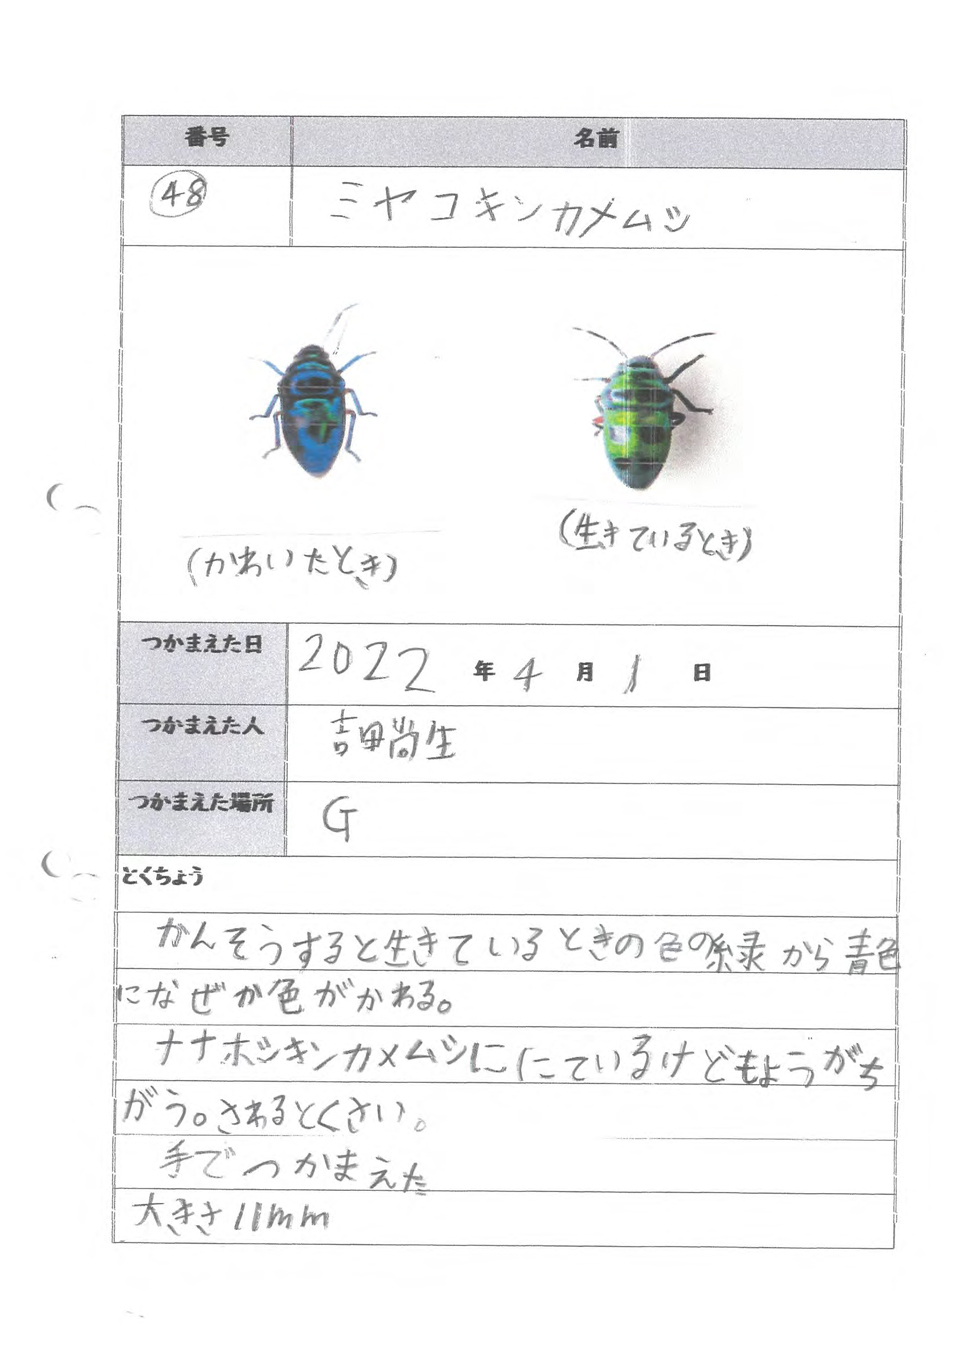 番号 名前
48 ミヤコキンカメムシ
(かわいたとき) (生きているとき)
つかまえた日 2022 年 4 月 1 日
つかまえた人 吉田尚生
つかまえた場所 G
とくちょう
かんそうすると生きているときの色の緑から青色
になぜか色がかわる。
ナナホシキンカメムシににているけどもようがち
がう。さわるとくさい。
手でつかまえた
大きさ11mm